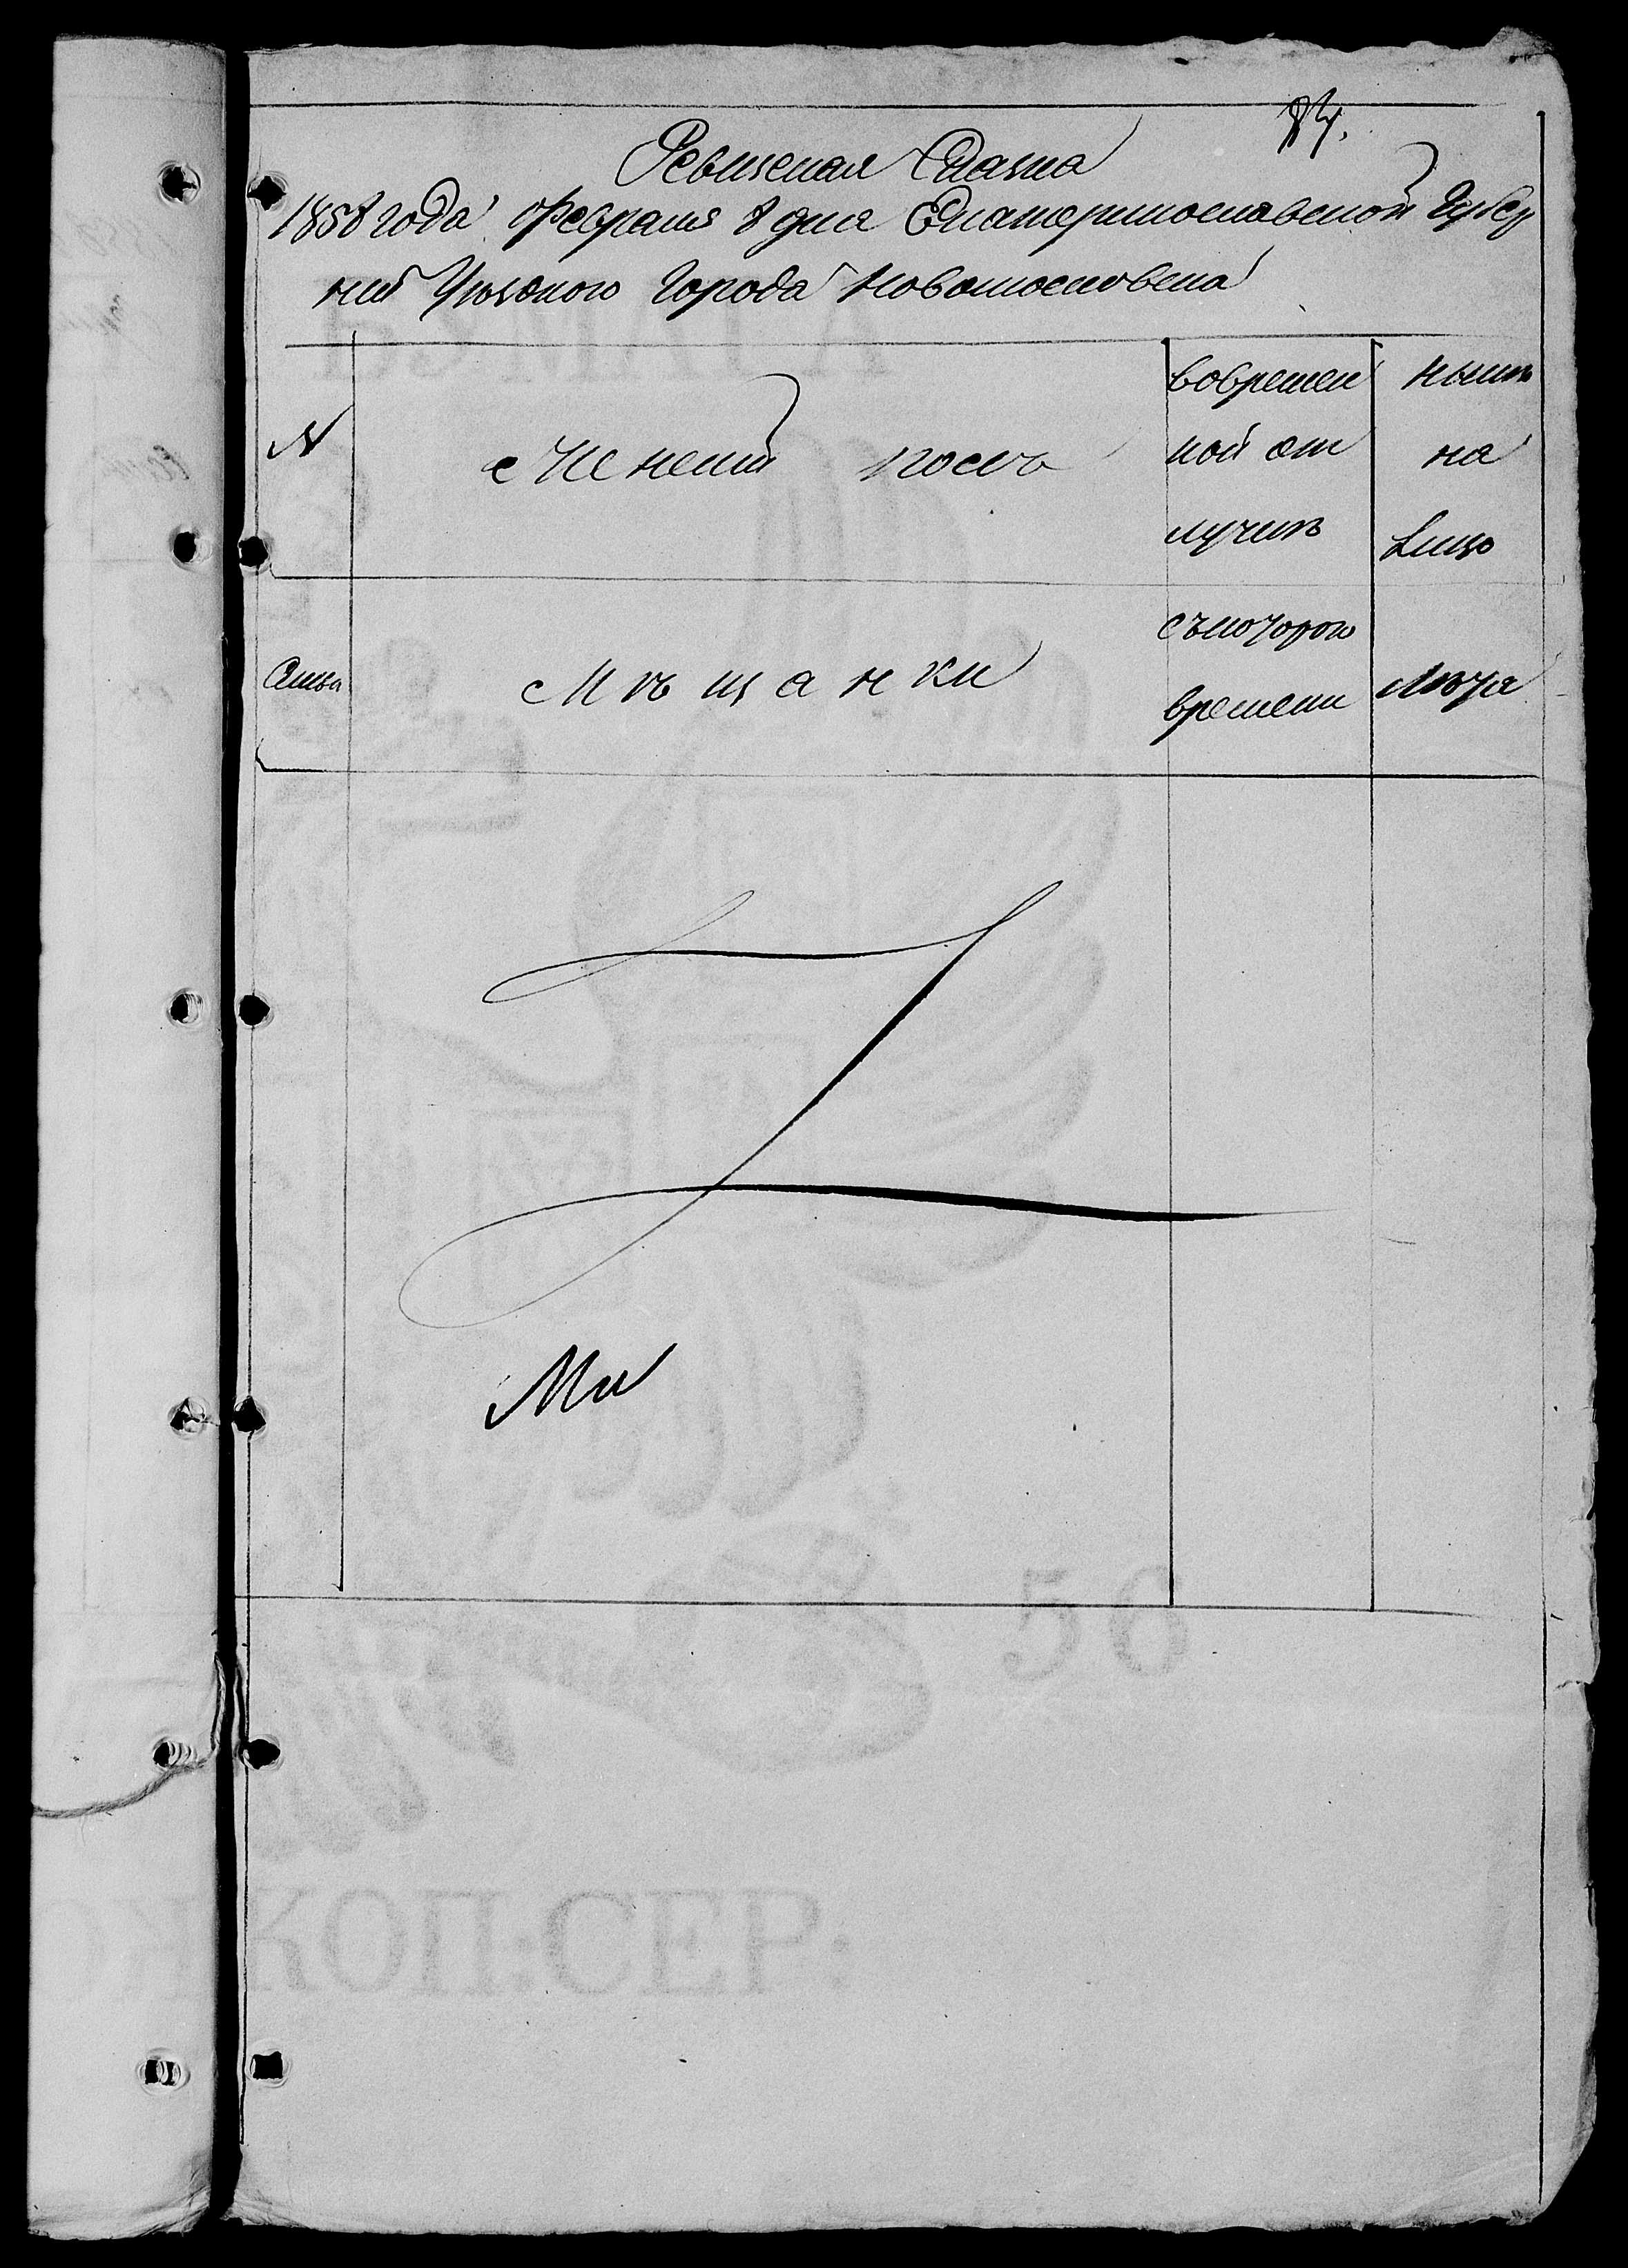 84.
Ревизская Сказка
1858 года Февраля 8 дня Екатеринославской Губер
нии Уѣзднаго Города Новомосковска
N
Женский полъ
вовремен
ной от
лучкѣ
Нынѣ
на
Лицо
Семья
Мѣщанки
съкоторого
времени
Лѣта
Ми
БУМАГА
56
КОП:СЕР: